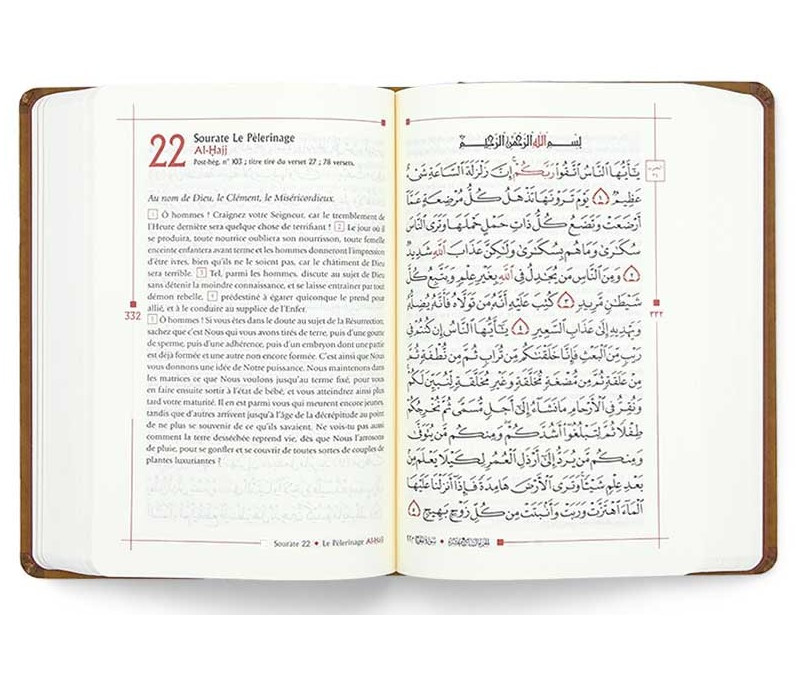 22
Sourate Le Pèlerinage
Al-Ḥajj
Post-hég. n° 103 ; titre tiré du verset 27 ; 78 versets.
Au nom de Dieu, le Clément, le Miséricordieux.
1 Ô hommes ! Craignez votre Seigneur, car le tremblement de
l'Heure dernière sera quelque chose de terrifiant ! 2 Le jour où il
se produira, toute nourrice oubliera son nourrisson, toute femelle
enceinte enfantera avant terme et les hommes donneront l'impression
d'être ivres, bien qu'ils ne le soient pas, car le châtiment de Dieu
sera terrible. 3 Tel, parmi les hommes, discute au sujet de Dieu
sans détenir la moindre connaissance, et se laisse entraîner par tout
démon rebelle, 4 prédestiné à égarer quiconque le prend pour
allié, et à le conduire au supplice de l'Enfer.
5 Ô hommes ! Si vous êtes dans le doute au sujet de la Résurrection,
sachez que c'est Nous qui vous avons tirés de terre, puis d'une goutte
de sperme, puis d'une adhérence, puis d'un embryon dont une partie
est déjà formée et une autre non encore formée. C'est ainsi que Nous
vous donnons une idée de Notre puissance. Nous maintenons dans
les matrices ce que Nous voulons jusqu'au terme fixé, pour vous
en faire ensuite sortir à l'état de bébé, et vous atteindrez ainsi plus
tard votre maturité. Il en est parmi vous qui meurent encore jeunes,
tandis que d'autres arrivent jusqu'à l'âge de la décrépitude au point
de ne plus se souvenir de ce qu'ils savaient. Ne vois-tu pas aussi
comment la terre desséchée reprend vie, dès que Nous l'arrosons
de pluie, pour se gonfler et se couvrir de toutes sortes de couples de
plantes luxuriantes !
332
Sourate 22 • Le Pèlerinage Al-Ḥajj
بِسْمِ اللَّهِ الرَّحْمَٰنِ الرَّحِيمِ
يَٰٓأَيُّهَا النَّاسُ اتَّقُوا رَبَّكُمْ إِنَّ زَلْزَلَةَ السَّاعَةِ شَىْءٌ
عَظِيمٌ ١ يَوْمَ تَرَوْنَهَا تَذْهَلُ كُلُّ مُرْضِعَةٍ عَمَّا
أَرْضَعَتْ وَتَضَعُ كُلُّ ذَاتِ حَمْلٍ حَمْلَهَا وَتَرَى النَّاسَ
سُكَٰرَىٰ وَمَا هُم بِسُكَٰرَىٰ وَلَٰكِنَّ عَذَابَ اللَّهِ شَدِيدٌ
٢ وَمِنَ النَّاسِ مَن يُجَٰدِلُ فِي اللَّهِ بِغَيْرِ عِلْمٍ وَيَتَّبِعُ كُلَّ
شَيْطَٰنٍ مَّرِيدٍ ٣ كُتِبَ عَلَيْهِ أَنَّهُ مَن تَوَلَّاهُ فَأَنَّهُ يُضِلُّهُ
وَيَهْدِيهِ إِلَىٰ عَذَابِ السَّعِيرِ ٤ يَٰٓأَيُّهَا النَّاسُ إِن كُنتُمْ فِي
رَيْبٍ مِّنَ الْبَعْثِ فَإِنَّا خَلَقْنَٰكُم مِّن تُرَابٍ ثُمَّ مِن نُّطْفَةٍ ثُمَّ
مِنْ عَلَقَةٍ ثُمَّ مِن مُّضْغَةٍ مُّخَلَّقَةٍ وَغَيْرِ مُخَلَّقَةٍ لِّنُبَيِّنَ لَكُمْ
وَنُقِرُّ فِي الْأَرْحَامِ مَا نَشَاءُ إِلَىٰ أَجَلٍ مُّسَمًّى ثُمَّ نُخْرِجُكُمْ
طِفْلًا ثُمَّ لِتَبْلُغُوا أَشُدَّكُمْ وَمِنكُم مَّن يُتَوَفَّىٰ
وَمِنكُم مَّن يُرَدُّ إِلَىٰ أَرْذَلِ الْعُمُرِ لِكَيْلَا يَعْلَمَ مِن
بَعْدِ عِلْمٍ شَيْئًا وَتَرَى الْأَرْضَ هَامِدَةً فَإِذَا أَنزَلْنَا عَلَيْهَا
الْمَاءَ اهْتَزَّتْ وَرَبَتْ وَأَنبَتَتْ مِن كُلِّ زَوْجٍ بَهِيجٍ ٥
٣٣٢